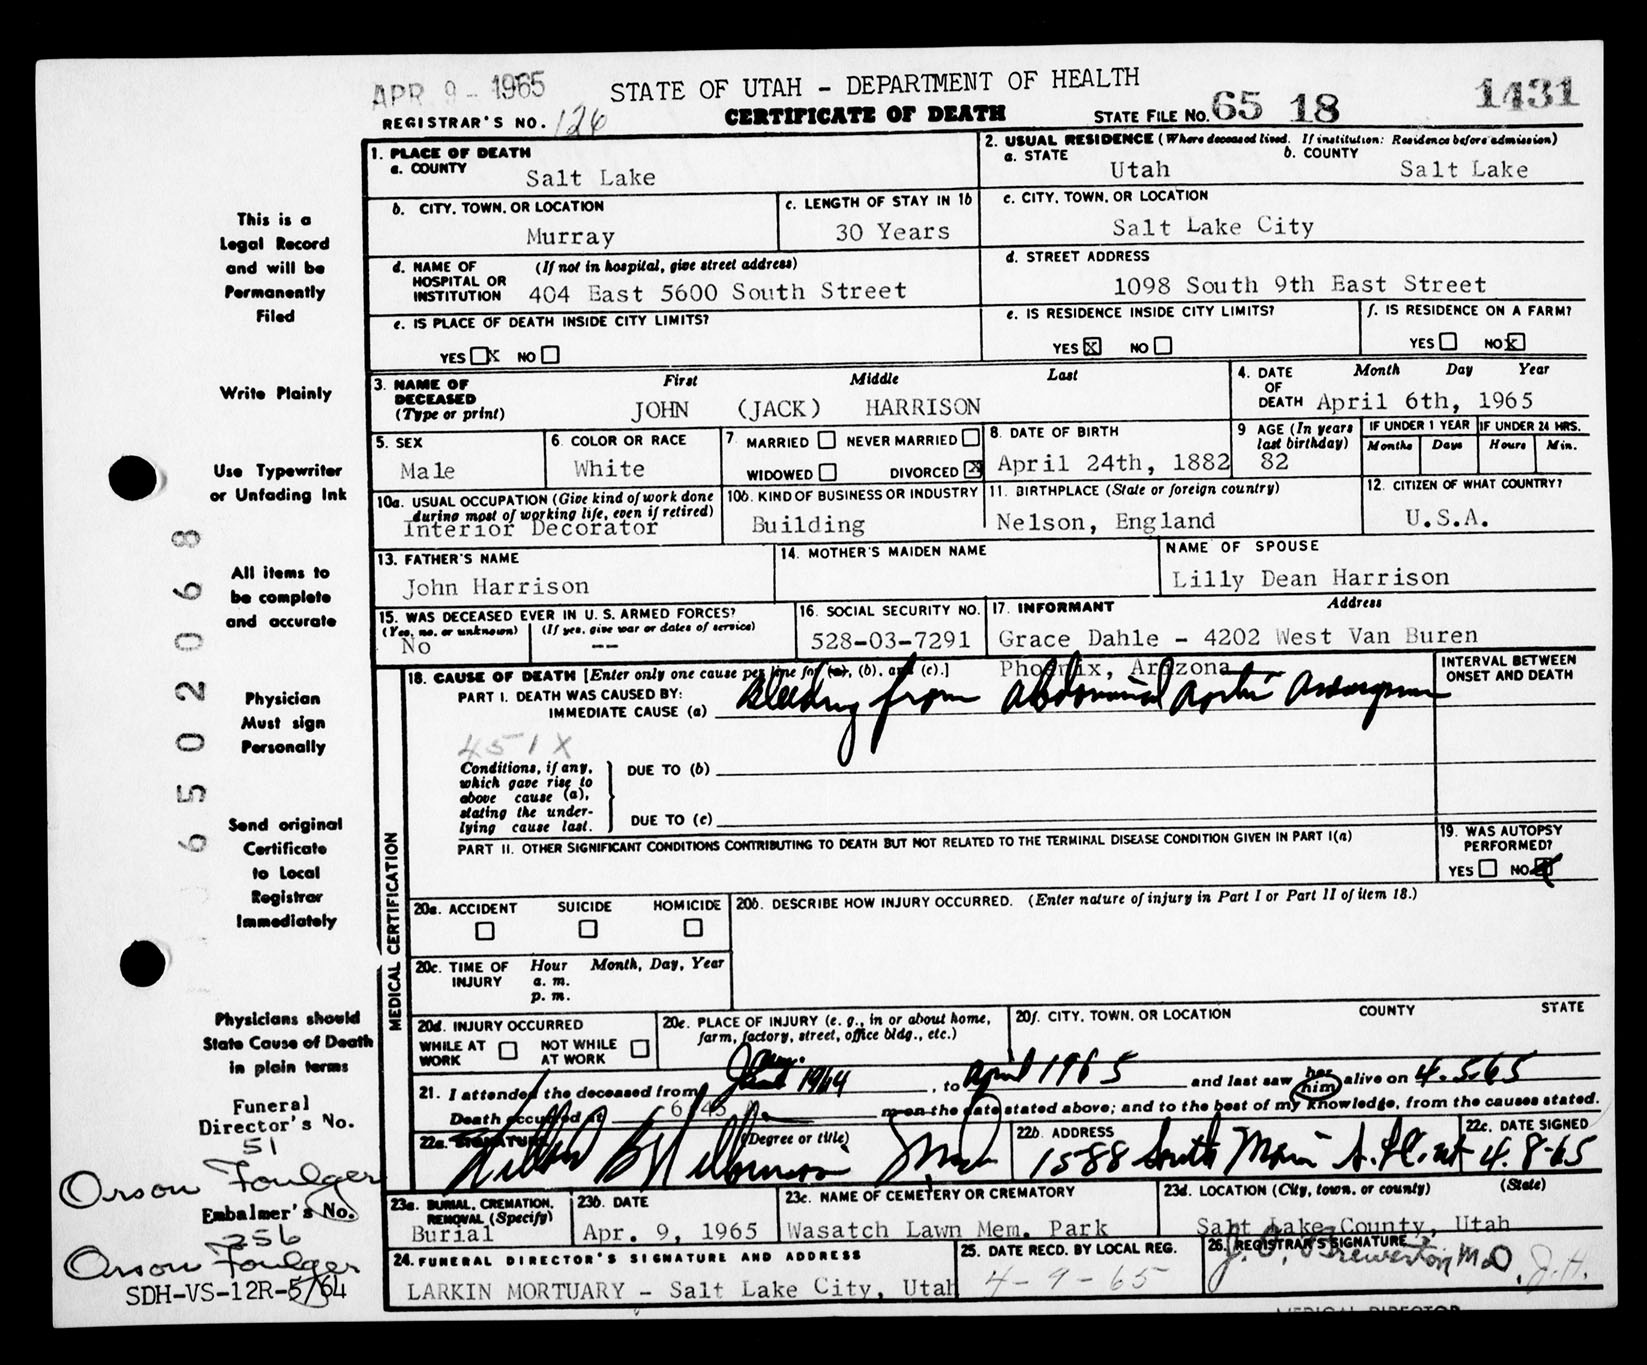 APR 9 - 1965
STATE OF UTAH - DEPARTMENT OF HEALTH
1431
REGISTRAR'S NO. 126
CERTIFICATE OF DEATH
STATE FILE NO. 65 18
1. PLACE OF DEATH
a. COUNTY
Salt Lake
2. USUAL RESIDENCE (Where deceased lived. If institution: Residence before admission)
a. STATE
Utah
b. COUNTY
Salt Lake
b. CITY, TOWN, OR LOCATION
Murray
c. LENGTH OF STAY IN 1b
30 Years
c. CITY, TOWN, OR LOCATION
Salt Lake City
d. NAME OF HOSPITAL OR INSTITUTION
(If not in hospital, give street address)
404 East 5600 South Street
d. STREET ADDRESS
1098 South 9th East Street
e. IS PLACE OF DEATH INSIDE CITY LIMITS?
YES X NO
e. IS RESIDENCE INSIDE CITY LIMITS?
YES X NO
f. IS RESIDENCE ON A FARM?
YES NO X
3. NAME OF DECEASED (Type or print)
First Middle Last
JOHN (JACK) HARRISON
4. DATE OF DEATH
Month Day Year
April 6th, 1965
5. SEX
Male
6. COLOR OR RACE
White
7. MARRIED NEVER MARRIED
WIDOWED DIVORCED X
8. DATE OF BIRTH
April 24th, 1882
9 AGE (In years last birthday)
82
IF UNDER 1 YEAR
Months Days
IF UNDER 24 HRS.
Hours Min.
10a. USUAL OCCUPATION (Give kind of work done during most of working life, even if retired)
Interior Decorator
10b. KIND OF BUSINESS OR INDUSTRY
Building
11. BIRTHPLACE (State or foreign country)
Nelson, England
12. CITIZEN OF WHAT COUNTRY?
U.S.A.
13. FATHER'S NAME
John Harrison
14. MOTHER'S MAIDEN NAME
NAME OF SPOUSE
Lilly Dean Harrison
15. WAS DECEASED EVER IN U. S. ARMED FORCES?
(Yes, no, or unknown) (If yes, give war or dates of service)
No --
16. SOCIAL SECURITY NO.
528-03-7291
17. INFORMANT Address
Grace Dahle - 4202 West Van Buren
Phoenix, Arizona
18. CAUSE OF DEATH [Enter only one cause per line for (a), (b), and (c).]
PART I. DEATH WAS CAUSED BY:
IMMEDIATE CAUSE (a)
Bleeding from Abdominal aortic
INTERVAL BETWEEN ONSET AND DEATH
451X
Conditions, if any, which gave rise to above cause (a), stating the underlying cause last.
DUE TO (b)
DUE TO (c)
PART II. OTHER SIGNIFICANT CONDITIONS CONTRIBUTING TO DEATH BUT NOT RELATED TO THE TERMINAL DISEASE CONDITION GIVEN IN PART I(a)
19. WAS AUTOPSY PERFORMED?
YES NO
MEDICAL CERTIFICATION
20a. ACCIDENT SUICIDE HOMICIDE
20b. DESCRIBE HOW INJURY OCCURRED. (Enter nature of injury in Part I or Part II of item 18.)
20c. TIME OF INJURY
Hour Month, Day, Year
a. m.
p. m.
20d. INJURY OCCURRED
WHILE AT WORK NOT WHILE AT WORK
20e. PLACE OF INJURY (e. g., in or about home, farm, factory, street, office bldg., etc.)
20f. CITY, TOWN, OR LOCATION COUNTY STATE
21. I attended the deceased from Jan. 1964, to April 1965 and last saw her him alive on 4.5.65
Death occurred at 6:45 m on the date stated above; and to the best of my knowledge, from the causes stated.
22a. SIGNATURE (Degree or title)
22b. ADDRESS
1588 South Main
22c. DATE SIGNED
4.8-65
23a. BURIAL, CREMATION, REMOVAL (Specify)
Burial
23b. DATE
Apr. 9, 1965
23c. NAME OF CEMETERY OR CREMATORY
Wasatch Lawn Mem. Park
23d. LOCATION (City, town, or county) (State)
Salt Lake County, Utah
24. FUNERAL DIRECTOR'S SIGNATURE AND ADDRESS
LARKIN MORTUARY - Salt Lake City, Utah
25. DATE RECD. BY LOCAL REG.
4-9-65
26. REGISTRAR'S SIGNATURE
J. H.
MEDICAL DIRECTOR
This is a
Legal Record
and will be
Permanently
Filed
Write Plainly
Use Typewriter
or Unfading Ink
All items to
be complete
and accurate
Physician
Must sign
Personally
Send original
Certificate
to Local
Registrar
Immediately
Physicians should
State Cause of Death
in plain terms
Funeral
Director's No.
51
Orson Foulger
Embalmer's No.
256
Orson Foulger
SDH-VS-12R-5/64
6502068